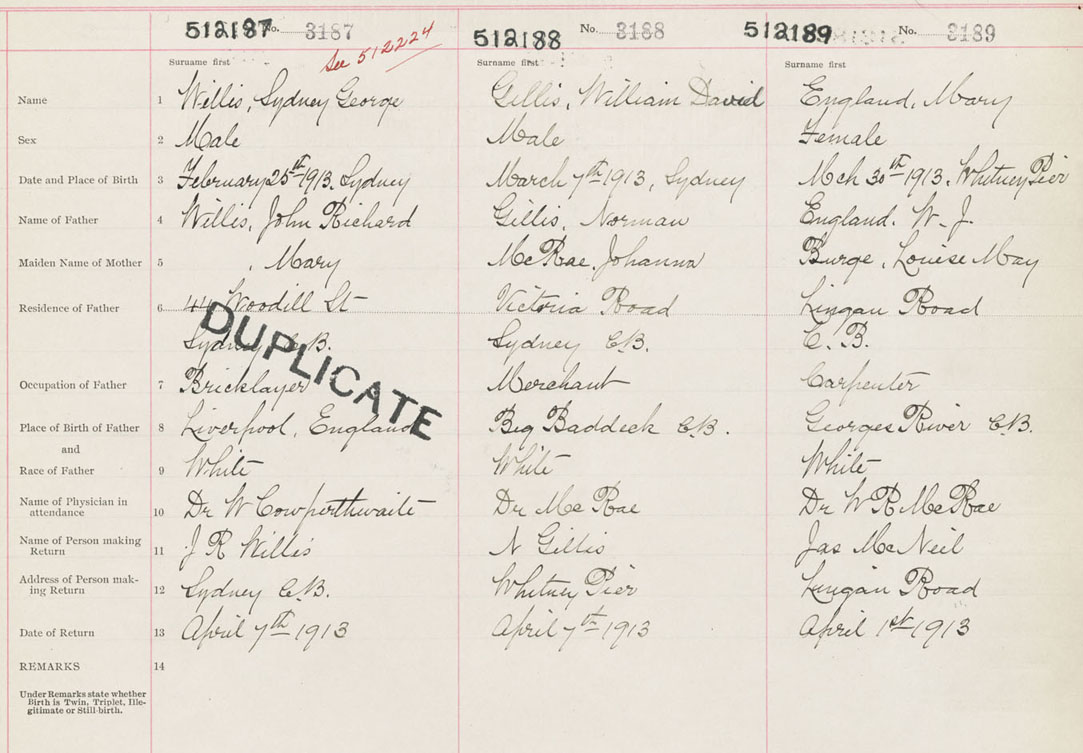 512187 No. 3187 512188 No. 3188 512189 No. 3189
See 512224
Surname first Surname first Surname first
Name 1 Willis, Sydney George Gillis, William David England, Mary
Sex 2 Male Male Female
Date and Place of Birth 3 February 25th 1913, Sydney March 7th 1913, Sydney Mch 30th 1913, Whitney Pier
Name of Father 4 Willis, John Richard Gillis, Norman England. W. J.
Maiden Name of Mother 5 , Mary McRae, Johanna Burge, Louise May
Residence of Father 6 44 Woodill St Victoria Road Lingan Road
Sydney C.B. Sydney C.B. C. B.
DUPLICATE
Occupation of Father 7 Bricklayer Merchant Carpenter
Place of Birth of Father 8 Liverpool, England Big Baddeck C.B. Georges River C.B.
and
Race of Father 9 White White White
Name of Physician in
attendance 10 Dr W Cowperthwaite Dr McRae Dr W R McRae
Name of Person making
Return 11 J R Willis N Gillis Jas McNeil
Address of Person mak-
ing Return 12 Sydney C.B. Whitney Pier Lingan Road
Date of Return 13 April 7th 1913 April 7th 1913 April 1st 1913
REMARKS 14
Under Remarks state whether
Birth is Twin, Triplet, Ille-
gitimate or Still-birth.